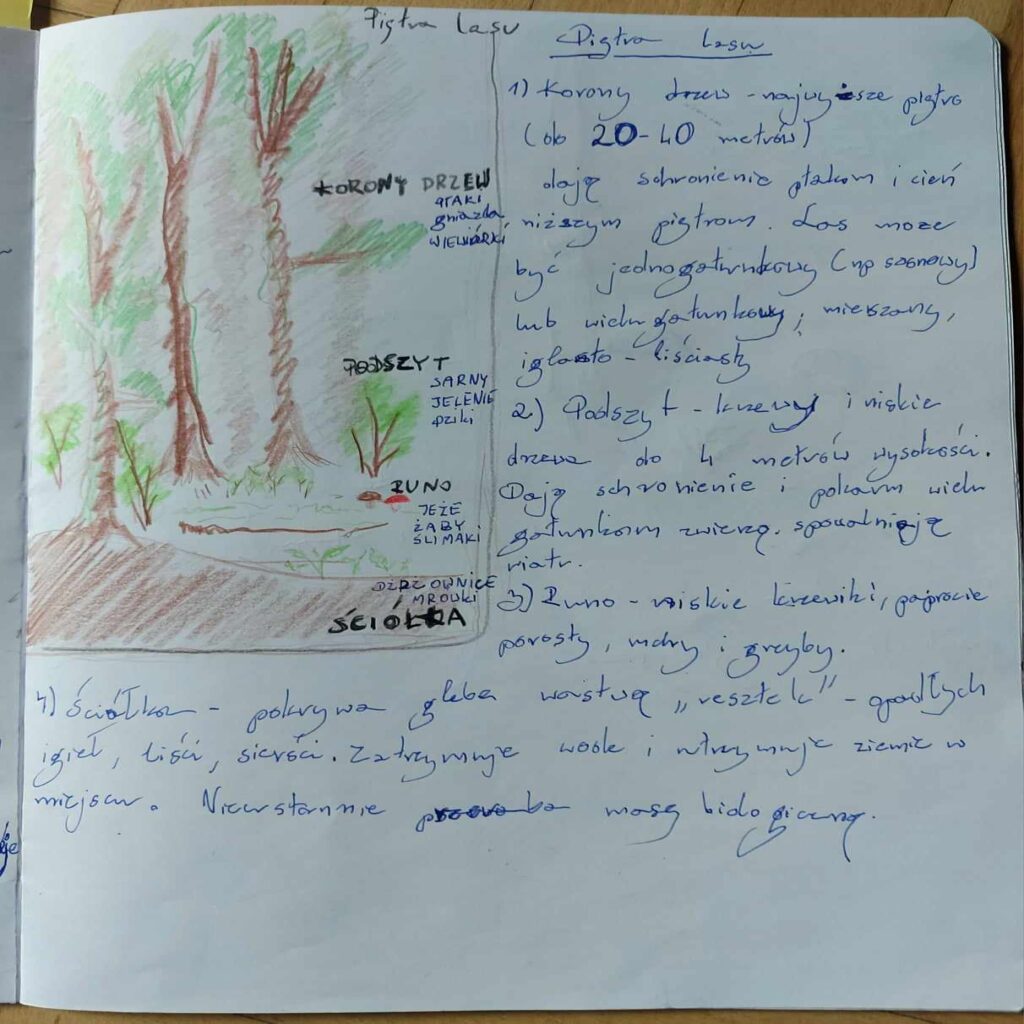 Piętra lasu
KORONY DRZEW
PTAKI
gniazda
WIEWIÓRKI
PODSZYT
SARNY
JELENIE
DZIKI
RUNO
JEŻE
ŻABY
ŚLIMAKI
DŻDŻOWNICE
MRÓWKI
ŚCIÓŁKA
Piętra lasu
1) Korony drzew - najwyższe piętro
(do 20-40 metrów)
dają schronienie ptakom i cień
niższym piętrom. Las może
być jednogatunkowy (np sosnowy)
lub wielugatunkowy; mieszany,
iglasto - liściasty
2) Podszyt - krzewy i niskie
drzewa do 4 metrów wysokości.
Dają schronienie i pokarm wielu
gatunkom zwierzą. spowalniają
wiatr.
3) Runo - niskie krzewiki, paprocie
porosty, mchy i grzyby.
4) Ściółka - pokrywa glebę warstwą „resztek" - opadłych
igieł, liści, sierści. Zatrzymuje wodę i utrzymuje ziemię w
miejscu. Nieustannie masę biologiczną.